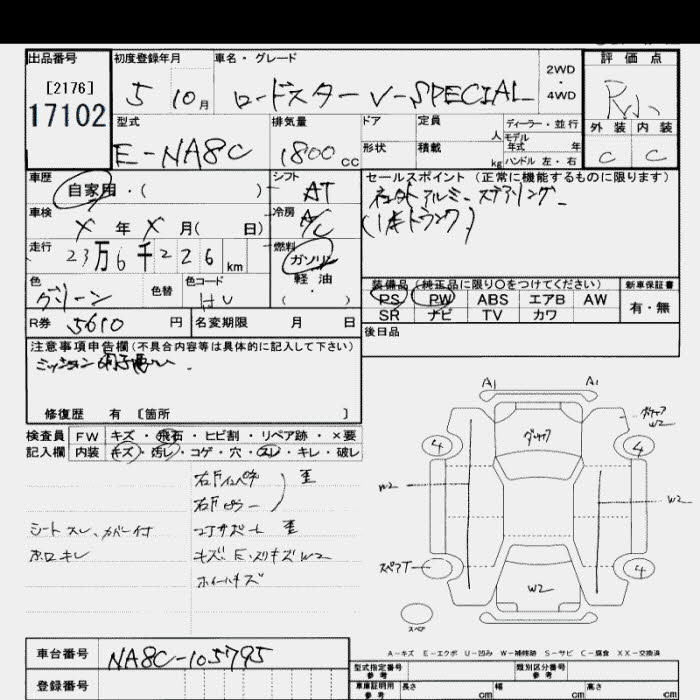 出品番号
[2176]
17102
初度登録年月
5 10月
車名・グレード
ロードスター V-SPECIAL
2WD
・
4WD
評価点
外装 内装
C C
型式
E-NA8C
排気量
1800 cc
ドア
形状
定員
人
積載
kg
ディーラー・並行
モデル
年式 年
ハンドル 左・右
車歴
自家用・( )
シフト
AT
車検
X 年 X 月( 日)
冷房
A/C
走行
23万6千226 km
燃料
ガソリン
軽油
( )
色
グリーン
色替
色コード
HU
R券 5610 円
名変期限 月 日
セールスポイント(正常に機能するものに限ります)
アルミ ステアリング
装備品(純正品に限り○をつけてください)
PS PW ABS エアB AW
SR ナビ TV カワ
新車保証書
有・無
後日品
注意事項申告欄(不具合内容等は具体的に記入して下さい)
ミッション調子悪い
修復歴 有 〔箇所 〕
検査員
記入欄
FW キズ・飛石・ヒビ割・リペア跡・×要
内装 キズ・汚レ・コゲ・穴・スレ・キレ・破レ
シート スレ、カバー付
ホロキレ
右Fインパネ 歪
右Fピラー
コアサポート 歪
キズ E・スリキズ W2
ホイールキズ
A1 A1
W2
4 4
W2 W2
スペアT
4
W2
スペア
A-キズ E-エクボ U-凹み W-補修跡 S-サビ C-腐食 XX-交換済
車台番号 NA8C-105795
登録番号
型式指定番号
参考
類別区分番号
参考
車庫証明用
参考
長さ cm
幅 cm
高さ cm